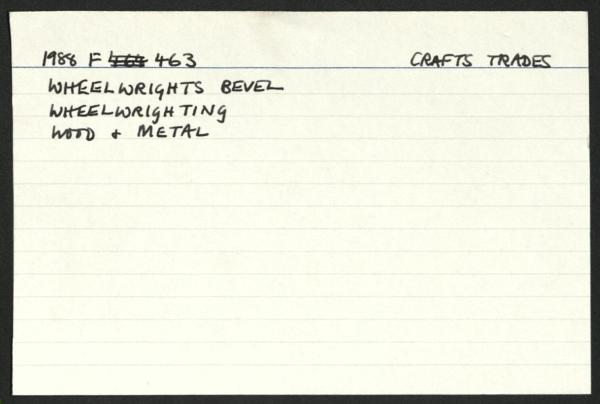 1988 F 463 CRAFTS TRADES
WHEELWRIGHTS BEVEL
WHEELWRIGHTING
WOOD + METAL